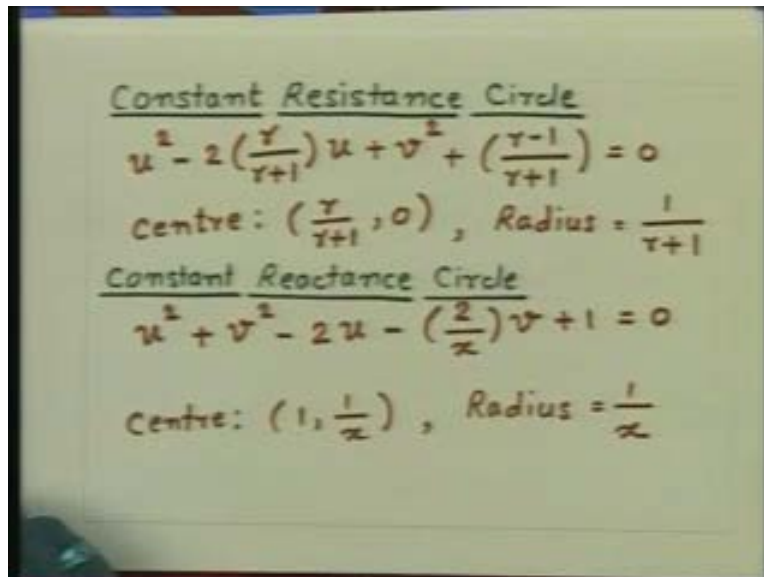 Constant Resistance Circle
u² - 2(r/r+1)u + v² + (r-1/r+1) = 0
Centre: (r/r+1, 0), Radius = 1/r+1
Constant Reactance Circle
u² + v² - 2u - (2/x)v + 1 = 0
Centre: (1, 1/x), Radius = 1/x